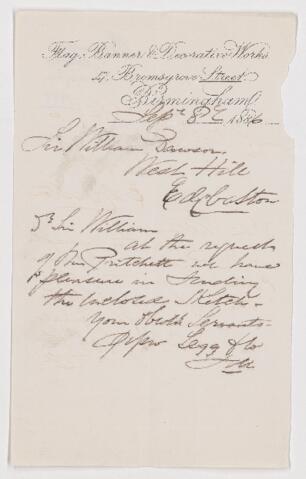 Flag, Banner & Decorative Works
Bromsgrove Street
Birmingham
Sept 8th 1886
Sir William Dawson
West Hill
Edgbaston
Dr Sir William
at the request
of Mr Pritchett we have
pleasure in sending
the enclosed Sketch.
Your Obedt Servants.
Legg & Co